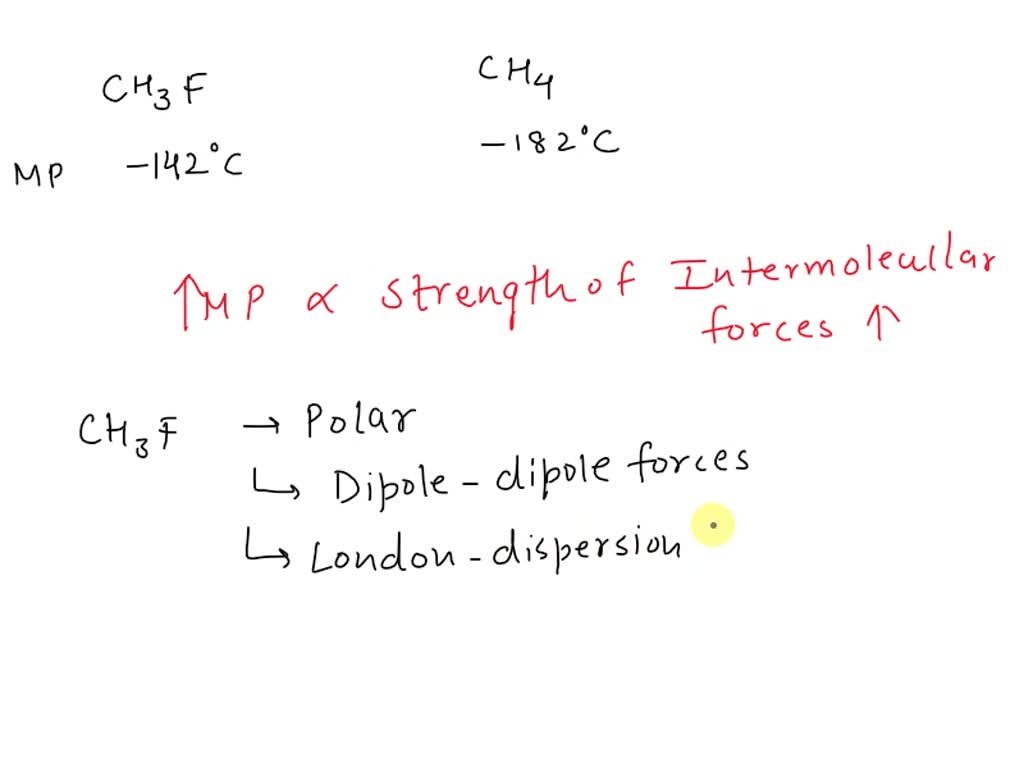 CH3F CH4
MP -142°C -182°C
↑MP ∝ strength of Intermolecullar
forces ↑
CH3F → Polar
↳ Dipole - dipole forces
↳ London - dispersion